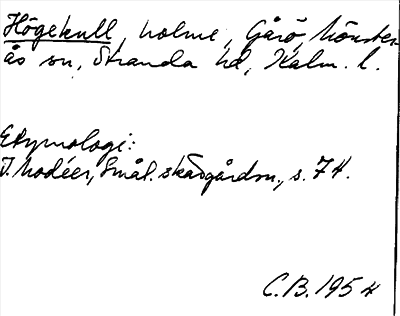 Högekull, holme, Gårö, Mönster-
ås sn, Stranda hd, Kalm. l.
Etymologi:
I. Modéer, Smål. skärgårdsn., s. 74.
C.B. 1954